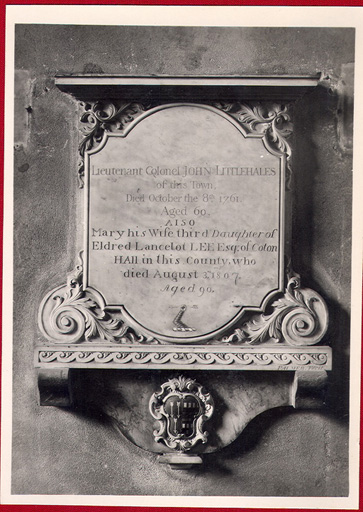 Lieutenant Colonel JOHN LITTLEHALES
of this Town,
Died October the 8th 1761.
Aged 60.
ALSO
Mary his Wife third Daughter of
Eldred Lancelot LEE Esqr. of Coton
HALL in this County, who
died August 1807
Aged 90.